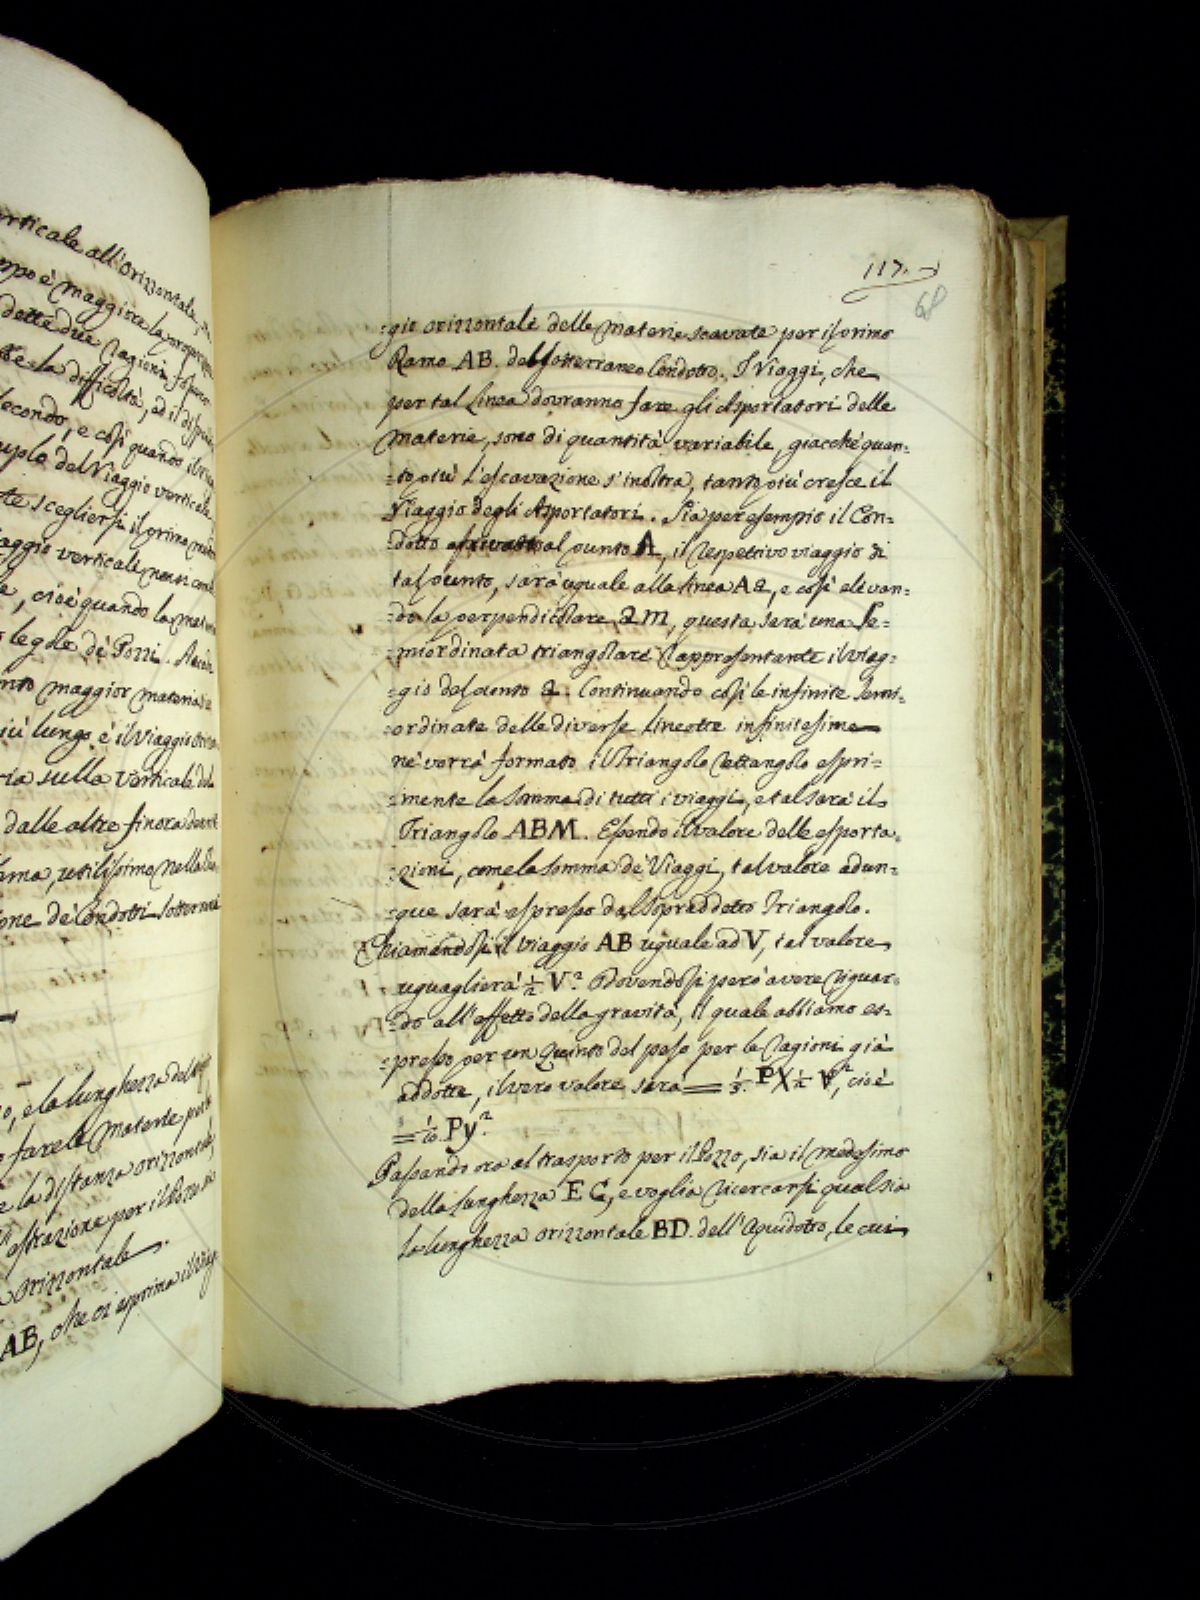 verticale all'orizzontale,
è maggiore la
dette due ragioni
la difficoltà, ed il
secondo, e così quando il
del Viaggio verticale
scegliersi il primo
verticale non si
, cioè quando la
regole dè Pozzi.
maggior materia
più lungo è il Viaggio
sulla verticale
dalle altre finora
utilissimo nella
dè Condotti
117.
68
=gio orizzontale delle materie scavate per il primo
Ramo AB. del Sotterraneo Condotto. I Viaggi, che
per tal Linea dovranno fare gli Asportatori delle
materie, sono di quantità variabile, giacchè quan=
=to più l'escavazione s'inoltra, tanto più cresce il
Viaggio degli Asportatori. Sia per esempio il Con=
=dotto arrivato al punto A, il respettivo viaggio di
tal punto, sarà uguale alla linea A2, e così elevan=
=do la perpendicolare 2m, questa sarà una Se=
=miordinata triangolare rappresentante il viag=
=gio del punto 2. Continuando così le infinite Semi=
=ordinate delle diverse lineette infinitesime
nè verrà formato il Triangolo rettangolo espri=
=mente la Somma di tutti i viaggi, e tal sarà il
Triangolo ABM. Essendo il valore delle esporta=
=zioni, come la Somma dè Viaggi, tal valore adun=
=que sarà espresso dal Sopraddetto Triangolo.
Chiamandosi il viaggio AB uguale ad V, tal valore
uguaglierà ½ V². Dovendosi però avere riguar=
=do all'effetto della gravità, il quale abbiamo es=
=presso per un Quinto del peso per le ragioni già
addotte, il vero valore sarà = ⅕. P X ½ V², cioè
= 1/10. Py².
Passando ora al trasporto per il Pozzo, sia il medesimo
della lunghezza EC, e voglia ricercarsi qual sia
la lunghezza orizzontale BD. dell'Aquidotto, le cui
, e la lunghezza del
fare le materie per
la distanza orizzontale
estrazione per il Pozzo
orizzontale.
AB, che ci esprima il Viag=